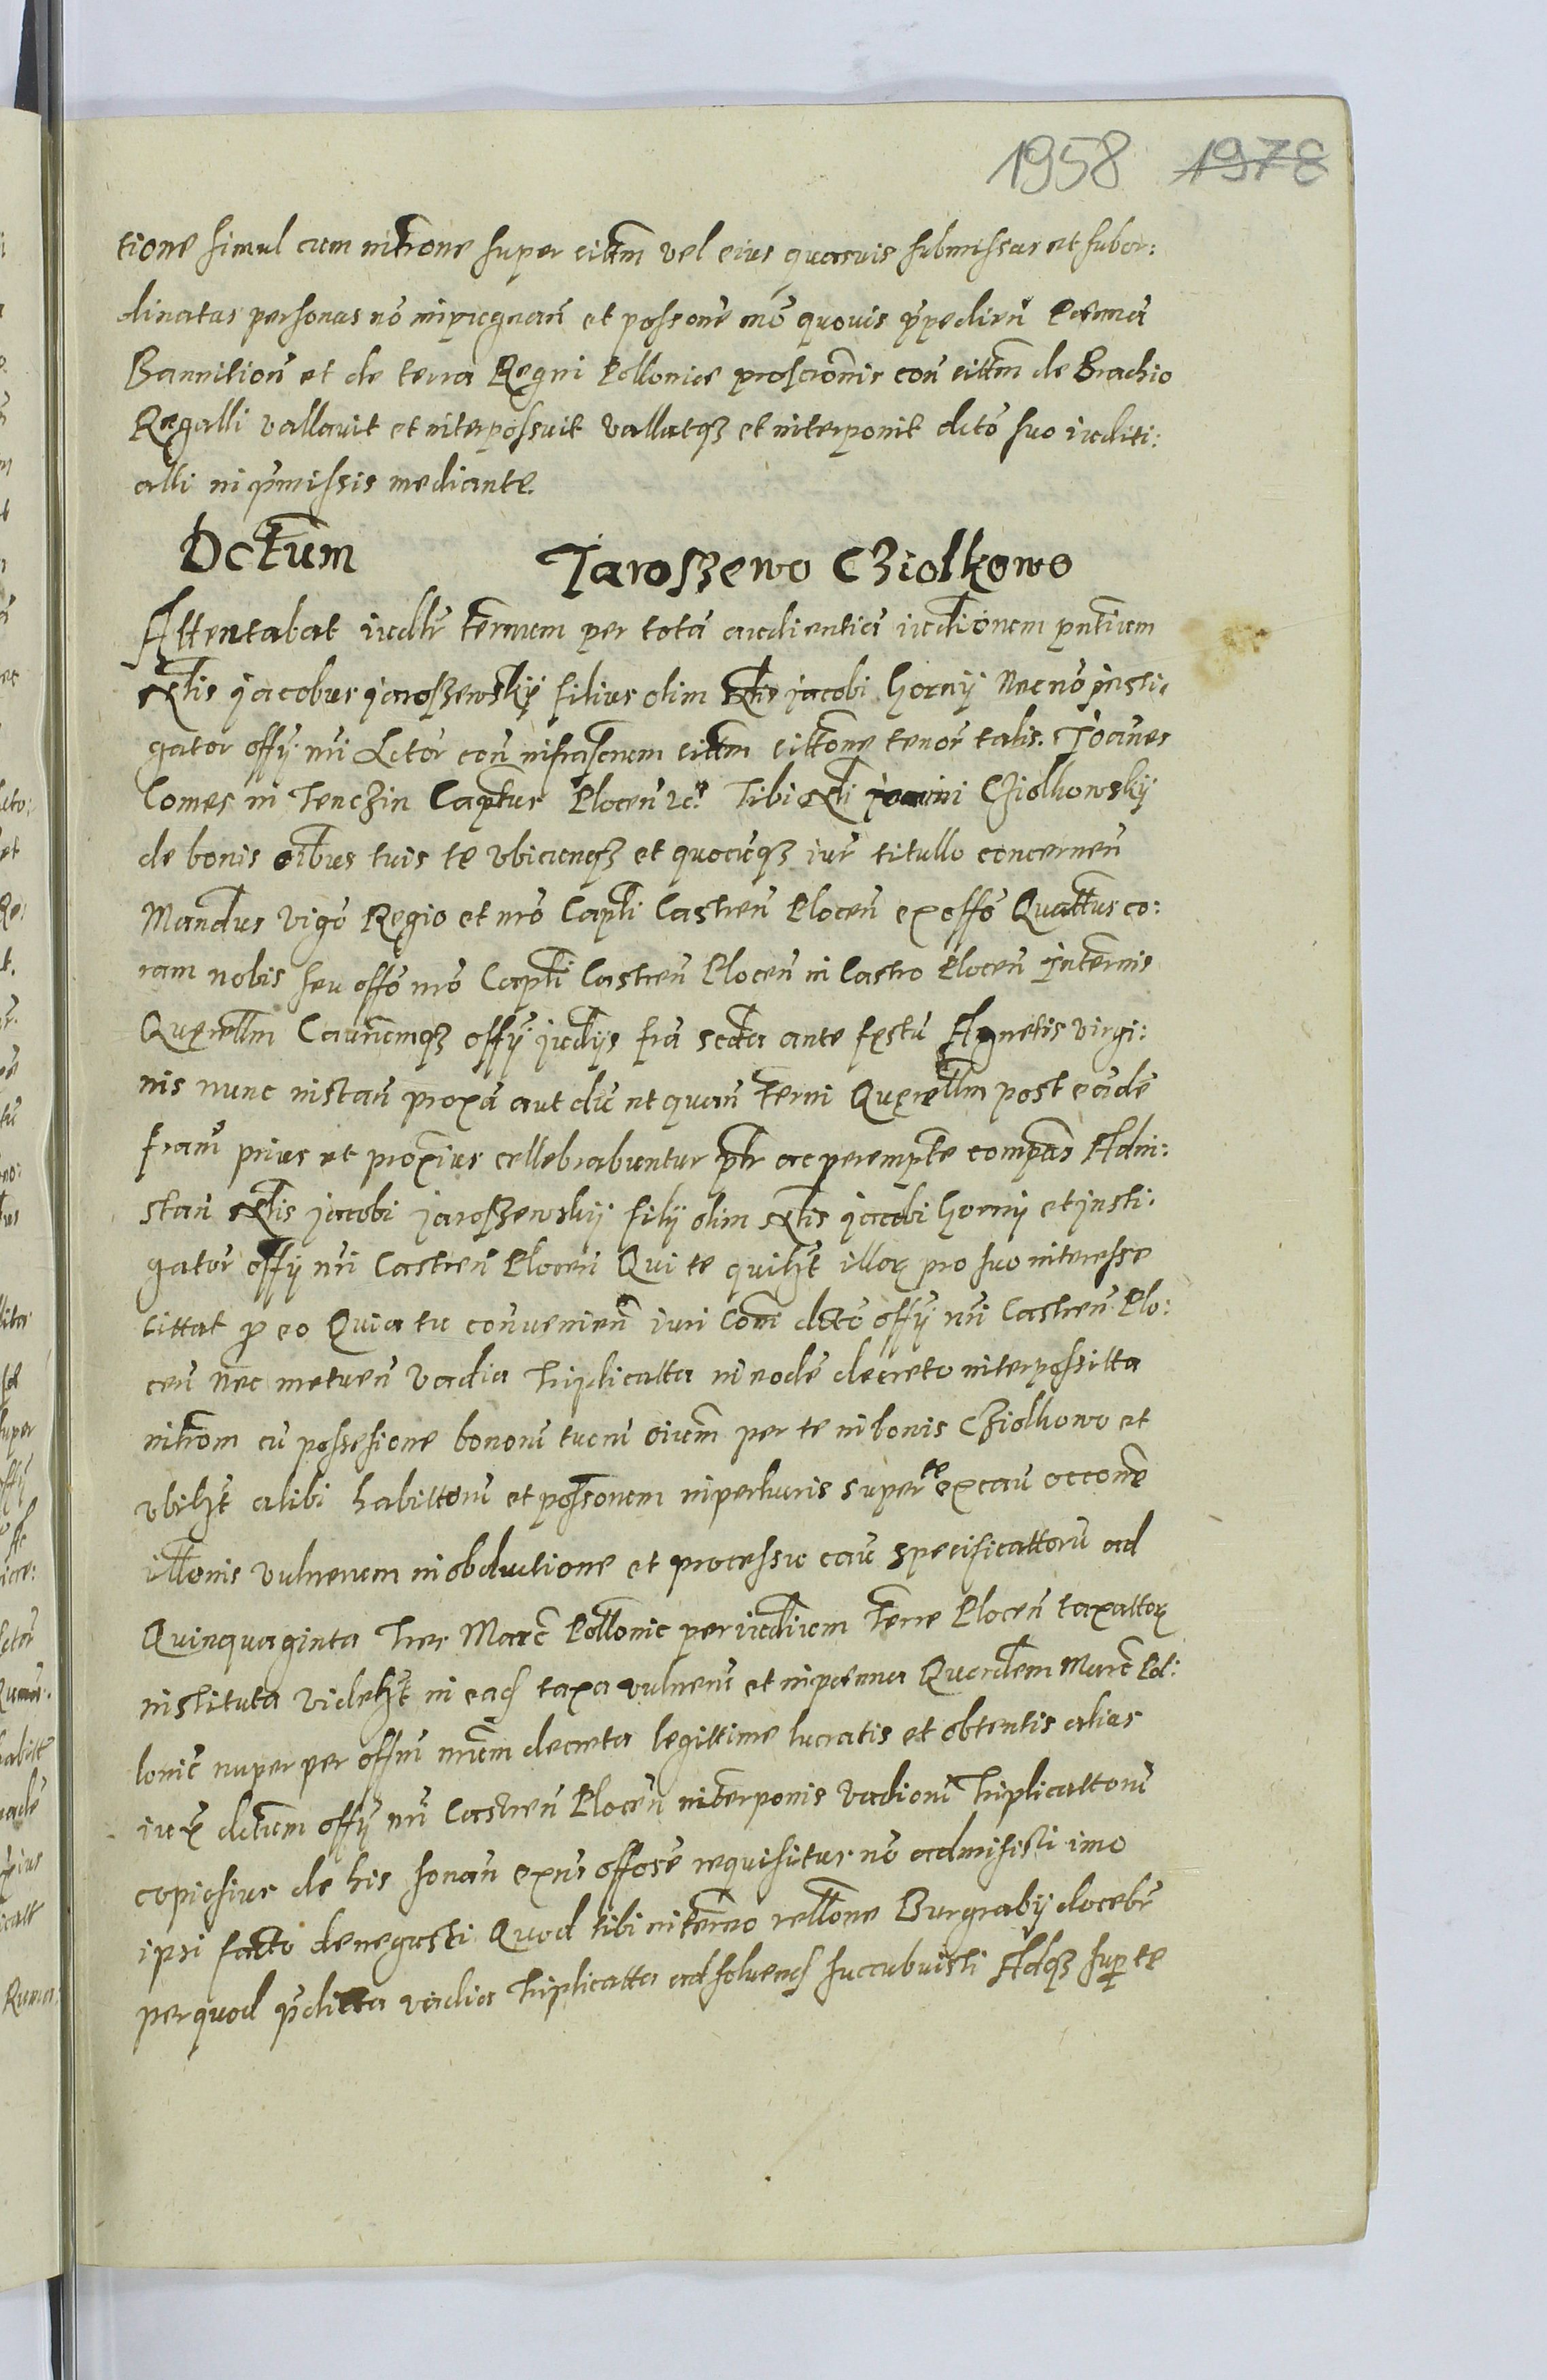 1958 1978
tione simul cum intrōne super cittm vel eius quasvis submissas et subor:
dinatas personas nō inpregnan̄ et possonē mō quovis p̄pediren̄ Poenā
Bannition̄ et de terra Regni Pollonice proscrōnis con̄ cittm de Brachio
Regalli vallavit et interpossuit vallatqȝ et interponit dctō suo iuditi:
alli in p̄missis mediante.
Dctum Jaroszewo Cziolkowo
Attentabat iudlr̄ termum per totā audientiā iudiōnem pn̄tium
Nblis Jacobus Jaroszewskij filius olim Nblis Jacobi Hornij Nec nō Insti:
gator offij nr̄i Actor con̄ infrascrem cittm cittōne tenor̄ talis. Joānes
Comes in Tenczin Capt̄us Plocen̄ ꝛc. Tibi Nbli Joanni Cziolkowskij
de bonis oībus tuis te vbicunqȝ et quocūqȝ iur̄ titullo concernen̄
Mandus vigō Regio et nr̄o Capli Castren̄ Plocen̄ ex offō Quattus co:
ram nobis seu offō nr̄o Capli Castren̄ Plocen̄ in Castro Plocen̄ In termis
Querellm Caurumqȝ offij iudijs frā scda ante festū Agnetis virgi:
nis nunc instan̄ proxā aut dū et quan̄ termi Querellm post eādē
fram̄ prius et proxius cellebrabuntur ptr̄ ac perempte compās Ad in:
stan̄ Nblis Jacobi Jaroszewskij filij olim Nblis Jacobi Hornij et Insti:
gator̄ offij nr̄i Castren̄ Plocen̄ Qui te quilzt illoꝝ pro suo interesse
cittat ꝓ eo Quia tu convenien̄ iuri Com̄i dctō offij nr̄i Castren̄ Plo:
cen̄ nec metuen̄ vadia Triplicatta in eodē decreto interpossitta
intrōm cū possesione bonorū tuorū oium per te in bonis Cziolkowo et
vbilzt alibi habittorū et possonem inperturis super te ex cau occonē
illōnis vulnerum in obductione et processu cau specificattorū ad
Quinquaginta Tres Marc Pollonic per iudium terre Plocen̄ taxattoꝝ
instituta videlzt in eadꝭ taxa vulnerū et in poenna Quardem Marc Pol:
lonic nuper per offm nr̄um decreta legittime lucratis et obtentis alias
iux̄ dctum offij nr̄i Castren̄ Plocen̄ interponis vadiorū Triplicattorū
copiosius de his sonan̄ ex nr̄s offosē requisitus nō admisisti imo
ipsi facto denegasti Quod tibi in termo rellōne Burgrabij docebr̄
per quod p̄dicta vadia Triplicatta ad solvendꝭ succubuisti Adqȝ sup te